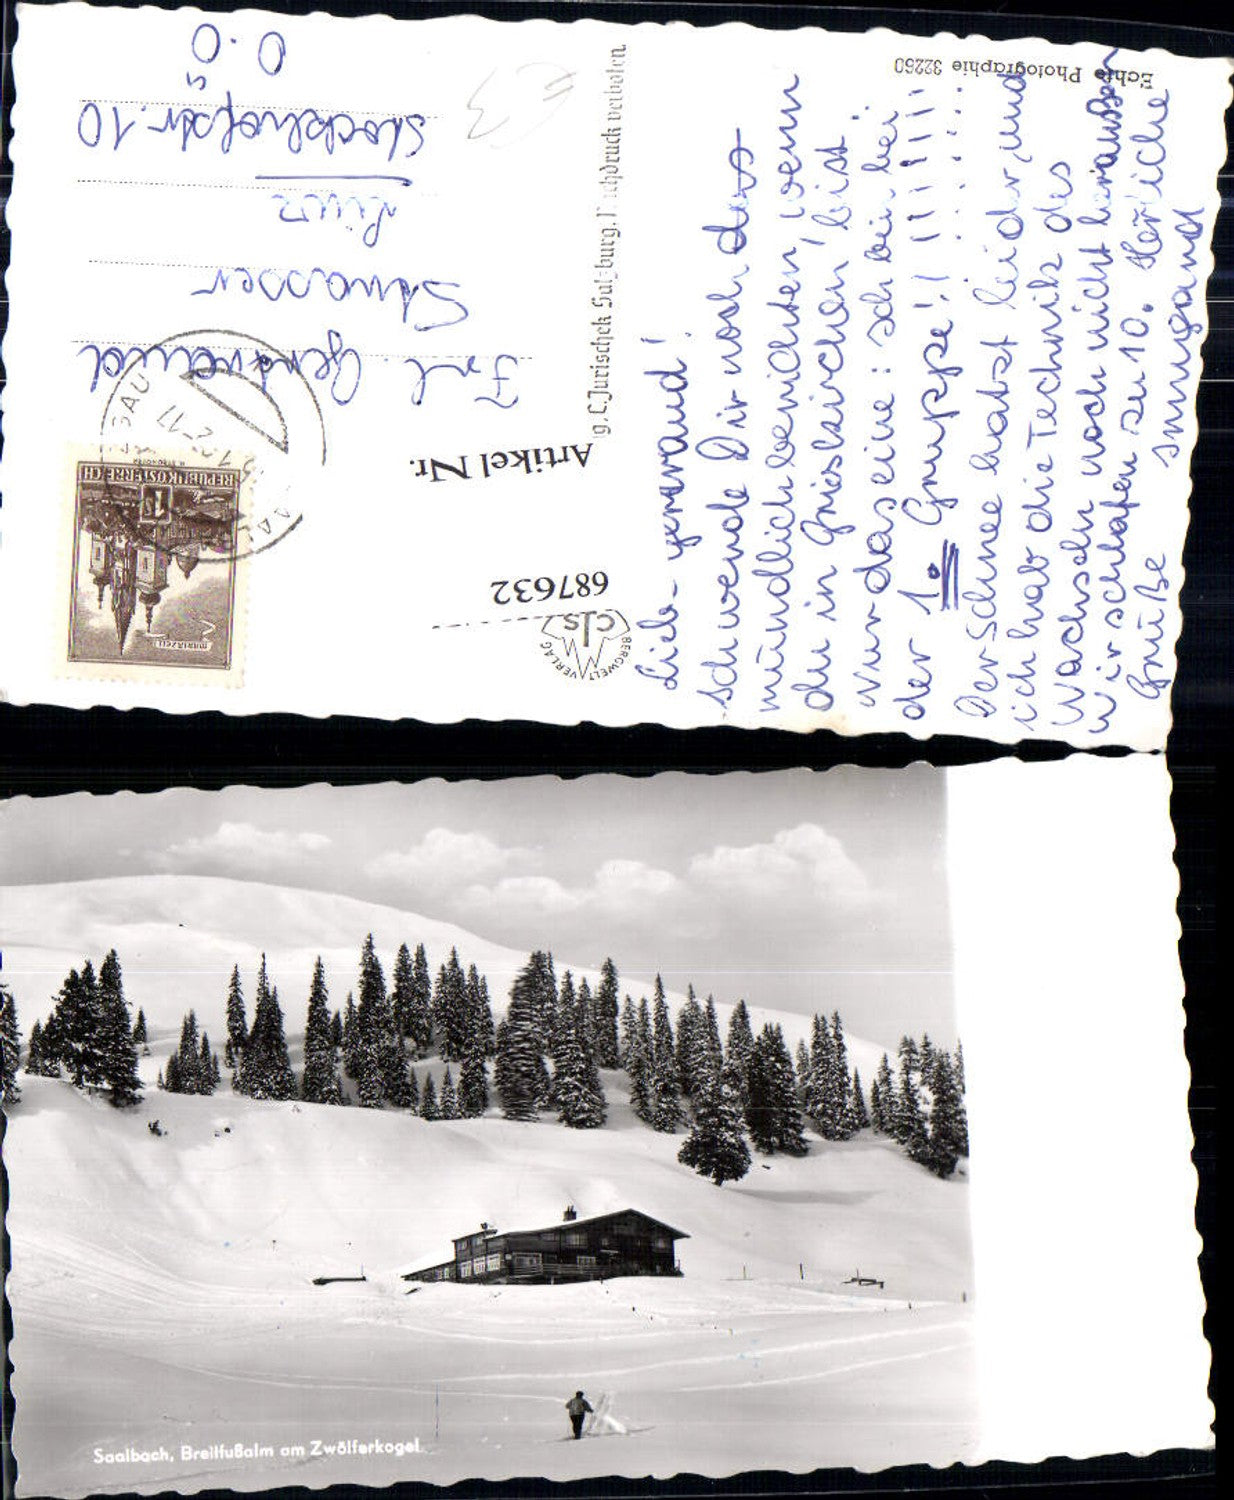 Echte Photographie 32260
Lieb- Gertraud!
schwende Dir noch das
mündlich berichten, wenn
du in Grieskirchen bist.
Nur das eine: ich bin bei
der 1. Gruppe!! !!!!!!
Der Schnee habst leider, und
ich hab die Technik des
Wachseln noch nicht heraußen
Wir schlafen zu 10. Herliche
Grüße Irmgard
Verlag C. Jurischek Salzburg. Nachdruck verboten.
Frl. Gertraud
Strasser
Linz
Stockhofstr. 10
O.Ö
€3
Artikel Nr.
687632
cls
BERGWELT VERLAG
REPUBLIK ÖSTERREICH
1S
MARIAZELL
Saalbach, Breitfußalm am Zwölferkogel